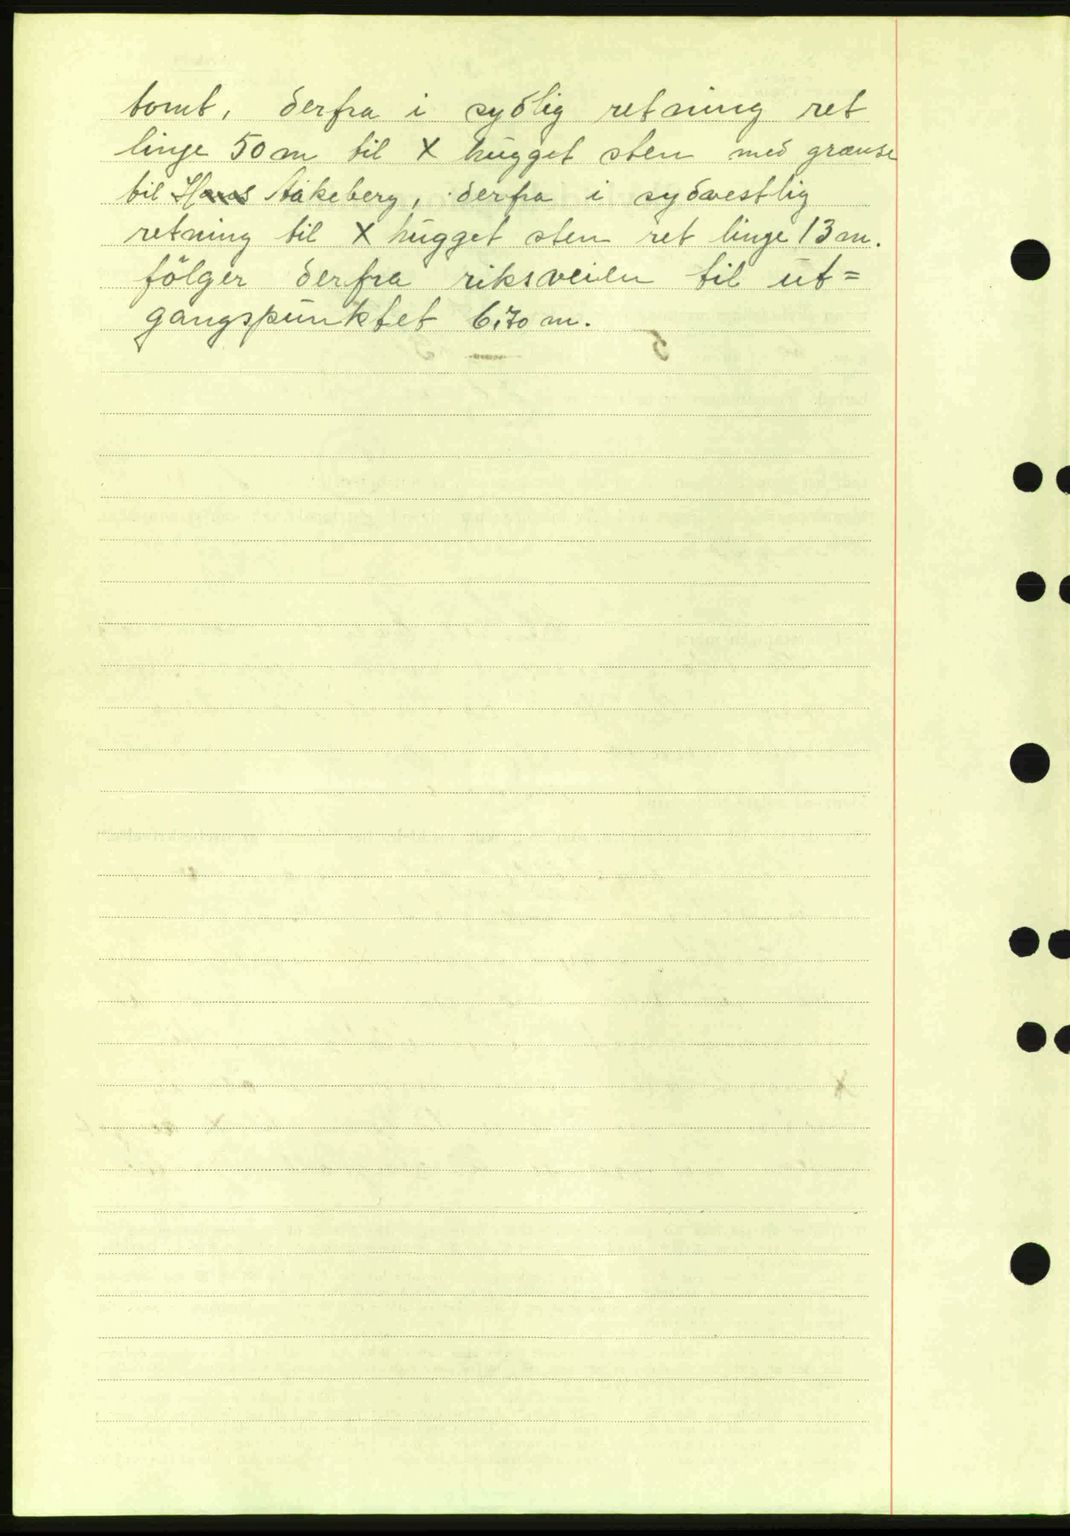 tomt, derfra i sydlig retning ret
linje 50 m til X hugget sten med grænse
til Hans Aakeberg, derfra i sydvestlig
retning til X hugget sten ret linje 13 m.
følger derfra riksveien til ut=
gangspunktet 6,70 m.